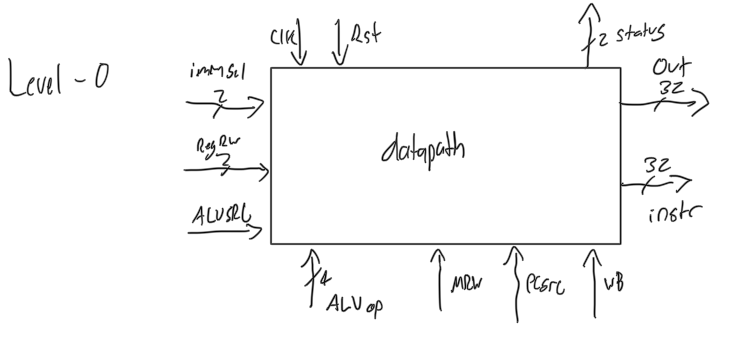 Level-0
Clk
Rst
2 status
immSel
2
RegRW
2
ALUSRC
datapath
Out
32
32
instr
4
ALUop
MRW
PCsrc
WB